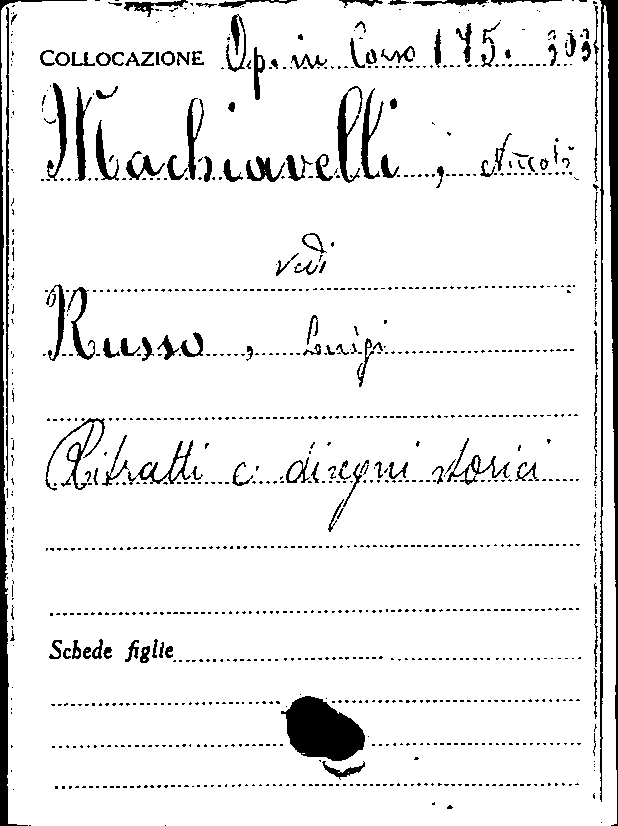 COLLOCAZIONE Op. in Corso 175. 303
Machiavelli, Niccolò
vedi
Russo, Luigi
Ritratti e disegni storici
Schede figlie